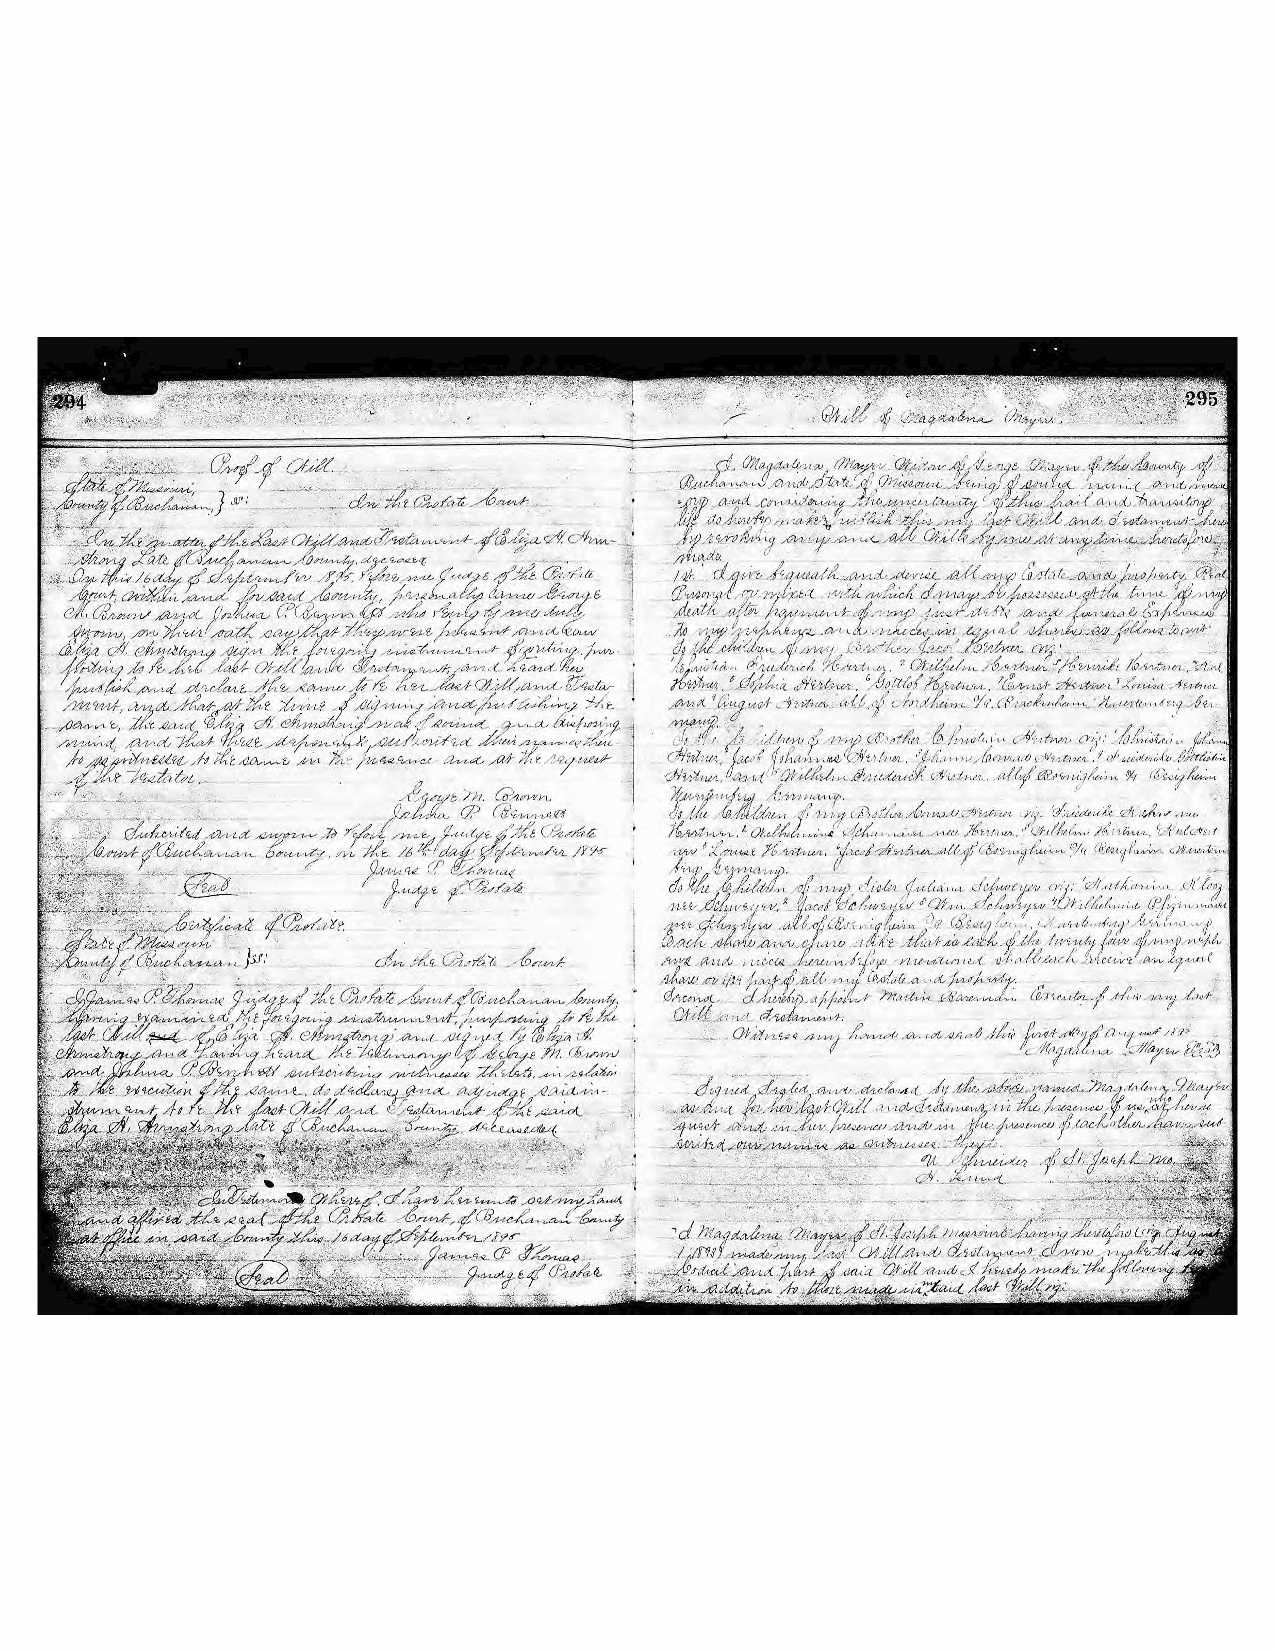 294
Proof of Will.
State of Missouri,
County of Buchanan, } ss:
In the Probate Court
In the matter of the Last Will and Testament of Eliza H. Arm-
strong Late of Buchanan County, deceased
On this 16 day of September 1895, before me Judge of the Probate
Court, within and for said County, personally came George
M. Brown and Joshua P. Bennett who being by me duly
sworn, on their oath say that they were present and saw
Eliza H. Armstrong sign the foregoing instrument of writing, pur-
porting to be her last Will and Testament, and heard her
publish and declare the same to be her last Will and Testa-
ment, and that at the time of signing and publishing the
same, the said Eliza H. Armstrong was of sound and disposing
mind, and that these deponents, subscribed their names there-
to as witnesses to the same in the presence and at the request
of the Testator.
George M. Brown
Joshua P. Bennett
Subscribed and sworn to before me, Judge of the Probate
Court of Buchanan County, on the 16th day of September 1895
James P. Thomas
Seal
Judge of Probate
Certificate of Probate.
State of Missouri
County of Buchanan } ss:
In the Probate Court
I, James P. Thomas Judge of the Probate Court of Buchanan County,
having examined the foregoing instrument, purporting to be the
last Will of Eliza H. Armstrong and signed by Eliza H.
Armstrong and having heard the testimony of George M. Brown
and Joshua P. Bennett subscribing witnesses thereto, in relation
to the execution of the same, do declare and adjudge said in-
strument, to be the last Will and Testament of the said
Eliza H. Armstrong late of Buchanan County, deceased
In Testimony Whereof, I have hereunto set my hand
and affixed the seal of the Probate Court, of Buchanan County
at office in said County this 16 day of September 1895
James P Thomas
Seal
Judge of Probate
295
Will of Magdalena Mayer.
I, Magdalena Mayer Widow of George Mayer of the County of
Buchanan and State of Missouri being of sound mind and mem-
ory and considering the uncertainty of this frail and transitory
life do hereby make, publish this my last Will and Testament here-
by revoking any and all Wills by me at any time heretofore
made.
1st. I give bequeath and devise all my Estate and property, Real
Personal or mixed with which I may be possessed at the time of my
death after payment of my just debts and funeral Expenses
to my nephews and nieces in equal shares as follows to wit
To the children of my brother Jacob Hertner viz:
Christian Friederich Hertner, Wilhelm Hertner Henrike Hertner, Karl
Hertner, Sophia Hertner, Gottlob Hertner, Ernst Hertner Louisa Hertner
and August Hertner all of Nordheim O/a Brackenheim Wuertemberg Ger-
many.
To the Children of my Brother Christian Hertner viz: Christian Johann
Hertner, Jacob Johannes Hertner, Johann Conrad Hertner, Friedericke Gottliebin
Hertner and Wilhelm Friederick Hertner all of Boenigheim O/a Besigheim
Wurtemberg Germany.
To the Children of my Brother Conrad Hertner viz: Friederike nee
Hertner, Wilhelmine nee Hertner, Wilhelm Hertner, Karl Hert
ner Louise Hertner, Jacob Hertner all of Boenigheim O/a Besigheim Wuertem
berg Germany.
To the Children of my Sister Juliana Schweyer viz: Katharina Klooz
nee Schweyer, Jacob Schweyer Wm Schweyer Wilhelmina
nee Schweyer all of Boenigheim O/a Besigheim, Wurtemberg Germany
Each share and share alike that is each of the twenty four of my neph
ews and nieces herein before mentioned shall each receive an equal
share or part of all my Estate and property.
Second I hereby appoint Martin Executor of this my last
Will and Testament.
Witness my hand and seal this first day of August
Magdalena Mayer
Signed Sealed and declared by the above named Magdalena Mayer
as and for her last Will and Testament in the presence of us, who at her re
quest and in her presence and in the presence of each other have sub
scribed our names as witnesses
U Schneider of St. Joseph Mo.
H. Lund
I Magdalena Mayer of St. Joseph Missouri having heretofore August
1, 1893 made my last Will and Testament I now make this as a
Codicil and part of said Will and I hereby make the following
in addition to those made in my said last Will viz: